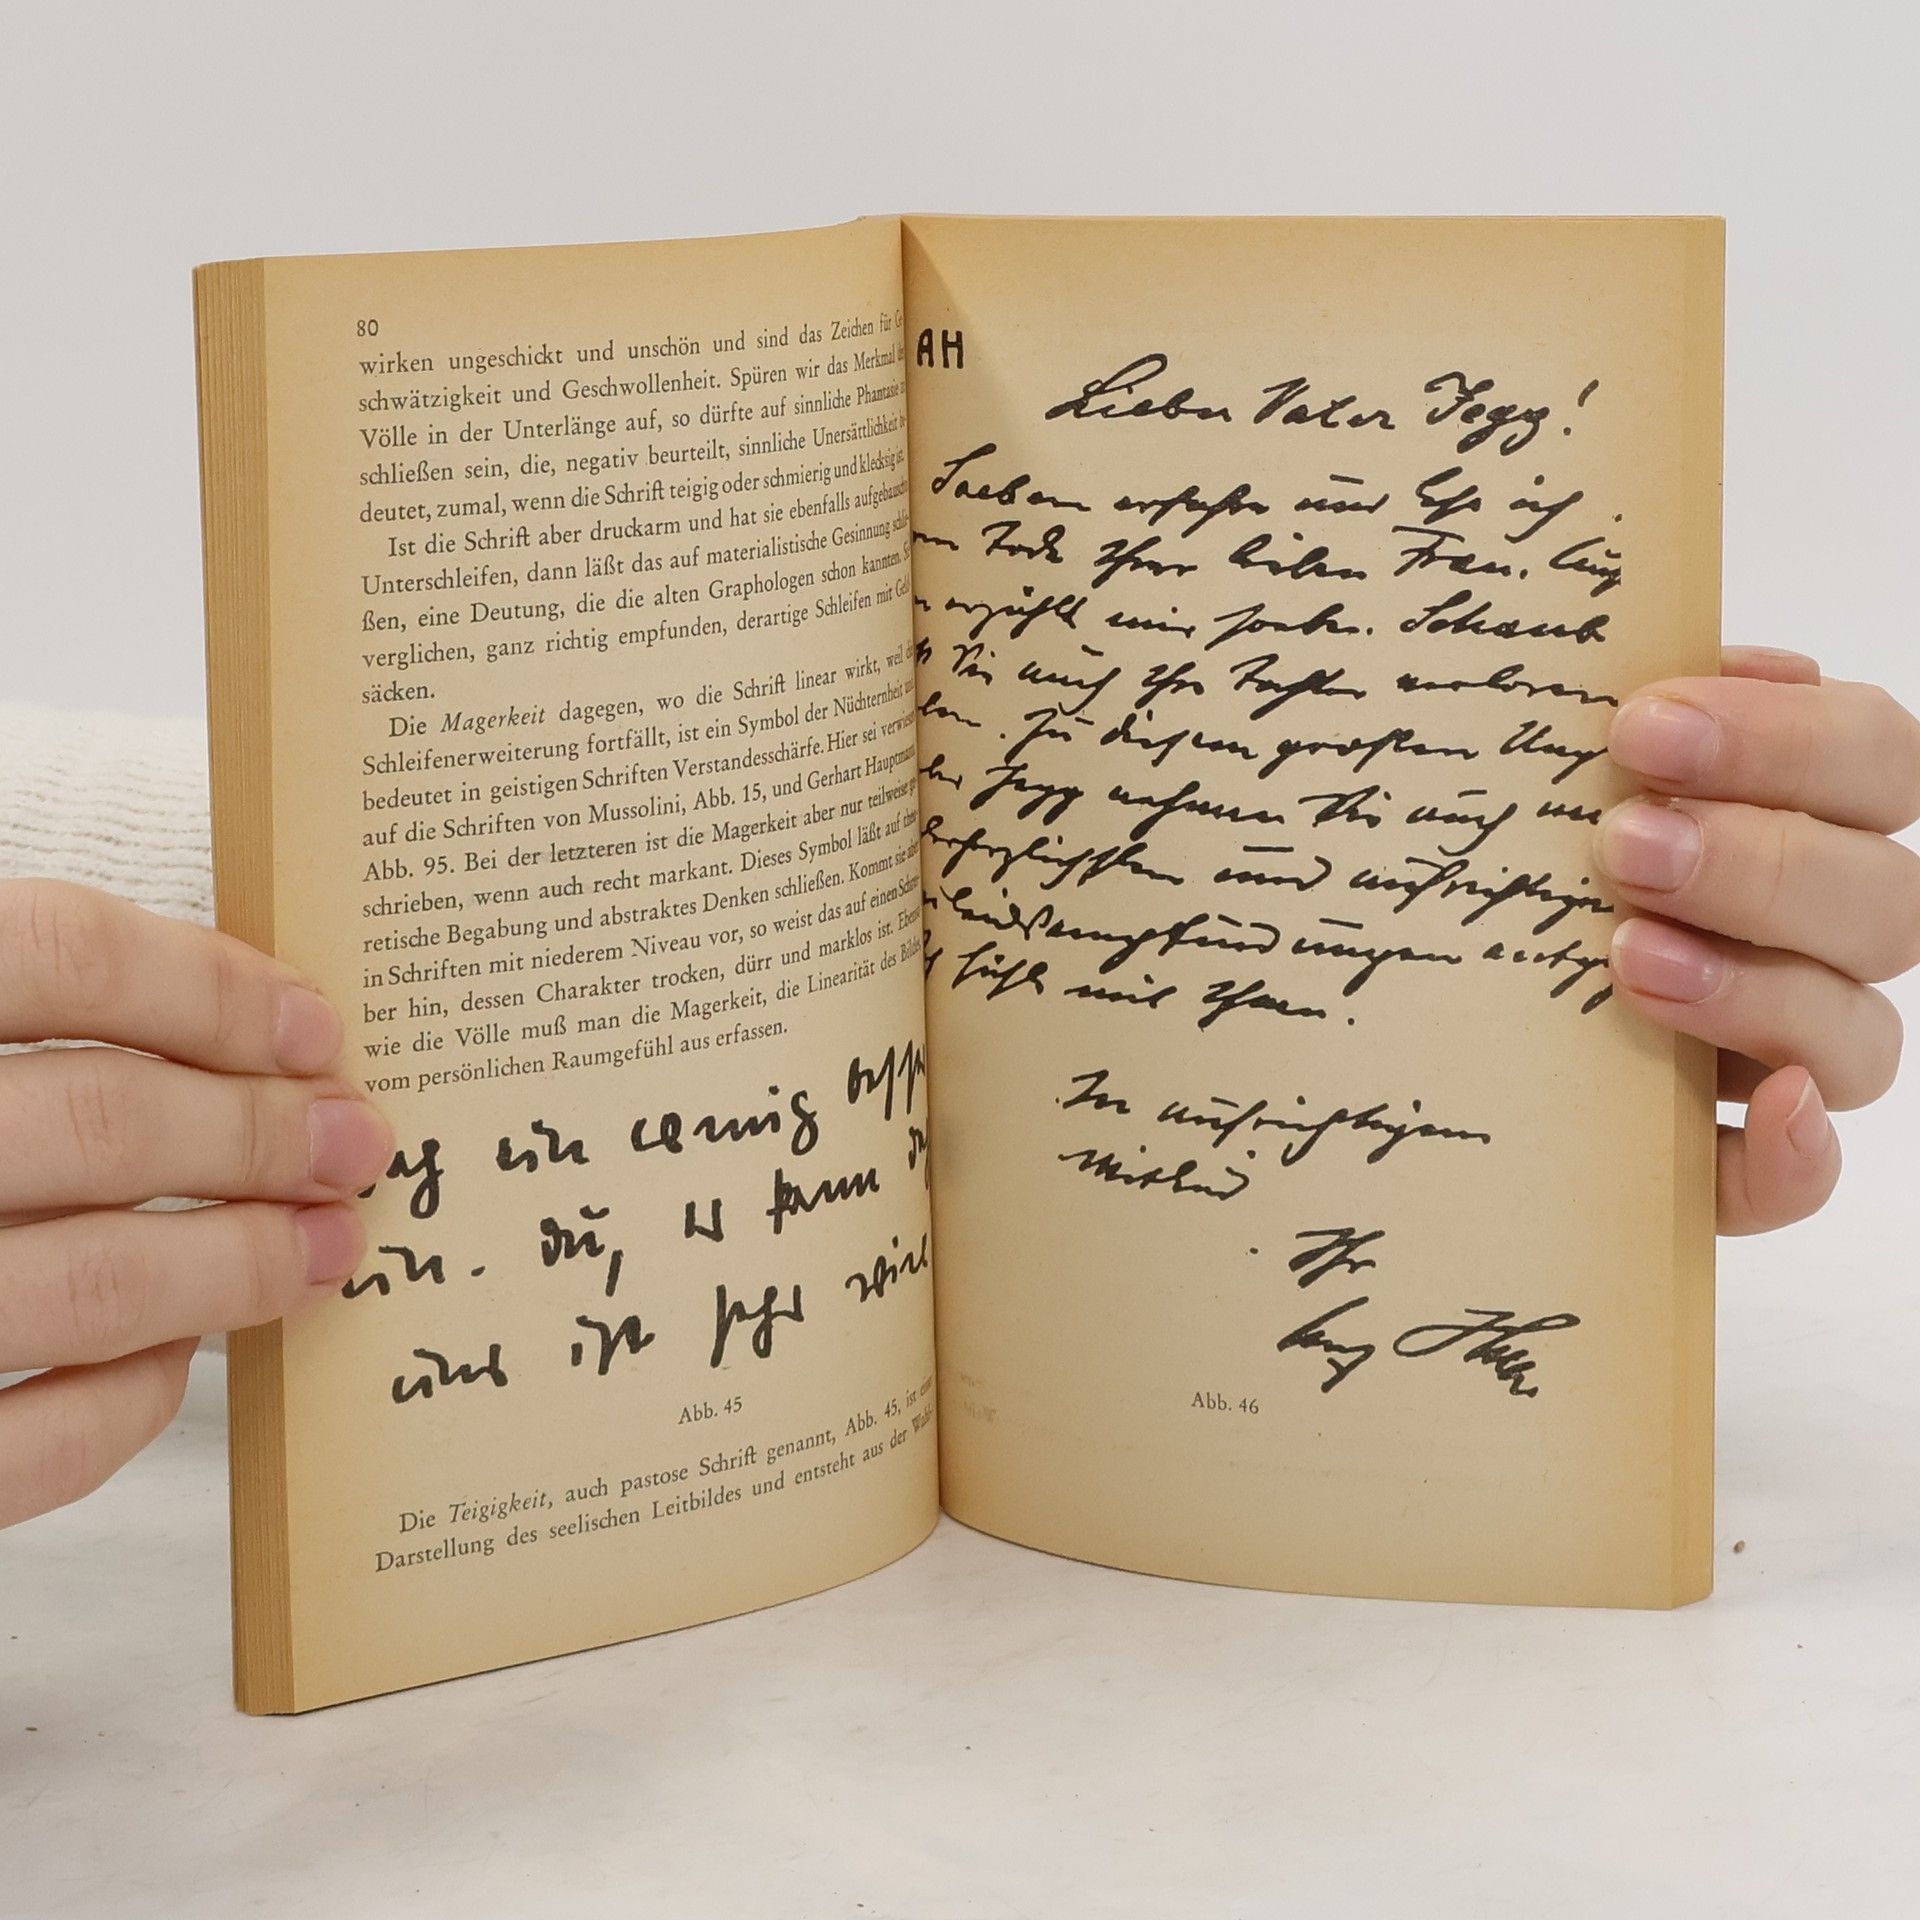 80
wirken ungeschickt und unschön und sind das Zeichen für
schwätzigkeit und Geschwollenheit. Spüren wir das Merkmal
Völle in der Unterlänge auf, so dürfte auf sinnliche Phantasie
schließen sein, die, negativ beurteilt, sinnliche Unersättlichkeit
deutet, zumal, wenn die Schrift teigig oder schmierig und klecksig ist.
Ist die Schrift aber druckarm und hat sie ebenfalls
Unterschleifen, dann läßt das auf materialistische Gesinnung
ßen, eine Deutung, die die alten Graphologen schon kannten.
verglichen, ganz richtig empfunden, derartige Schleifen mit
säcken.
Die Magerkeit dagegen, wo die Schrift linear wirkt, weil
Schleifenerweiterung fortfällt, ist ein Symbol der Nüchternheit
bedeutet in geistigen Schriften Verstandesschärfe. Hier sei
auf die Schriften von Mussolini, Abb. 15, und Gerhart Hauptmann
Abb. 95. Bei der letzteren ist die Magerkeit aber nur teilweise
schrieben, wenn auch recht markant. Dieses Symbol läßt auf
retische Begabung und abstraktes Denken schließen. Kommt sie
in Schriften mit niederem Niveau vor, so weist das auf einen
ber hin, dessen Charakter trocken, dürr und marklos ist.
wie die Völle muß man die Magerkeit, die Linearität des Bildes
vom persönlichen Raumgefühl aus erfassen.
ein wenig
du, es kann
uns ist sehr
Abb. 45
Die Teigigkeit, auch pastose Schrift genannt, Abb. 45, ist
Darstellung des seelischen Leitbildes und entsteht aus der
AH
Lieber Vater Jegg!
Soeben erfahre ich
Tode Ihrer lieben Frau.
erzählt mir soeben. Schaub
Sie auch Ihre Tochter verloren
. Zu diesem großen
Jegg nehmen Sie auch
und aufrichtigen
fühle mit Ihnen.
In aufrichtigem
Mitleid
Ihr
Abb. 46